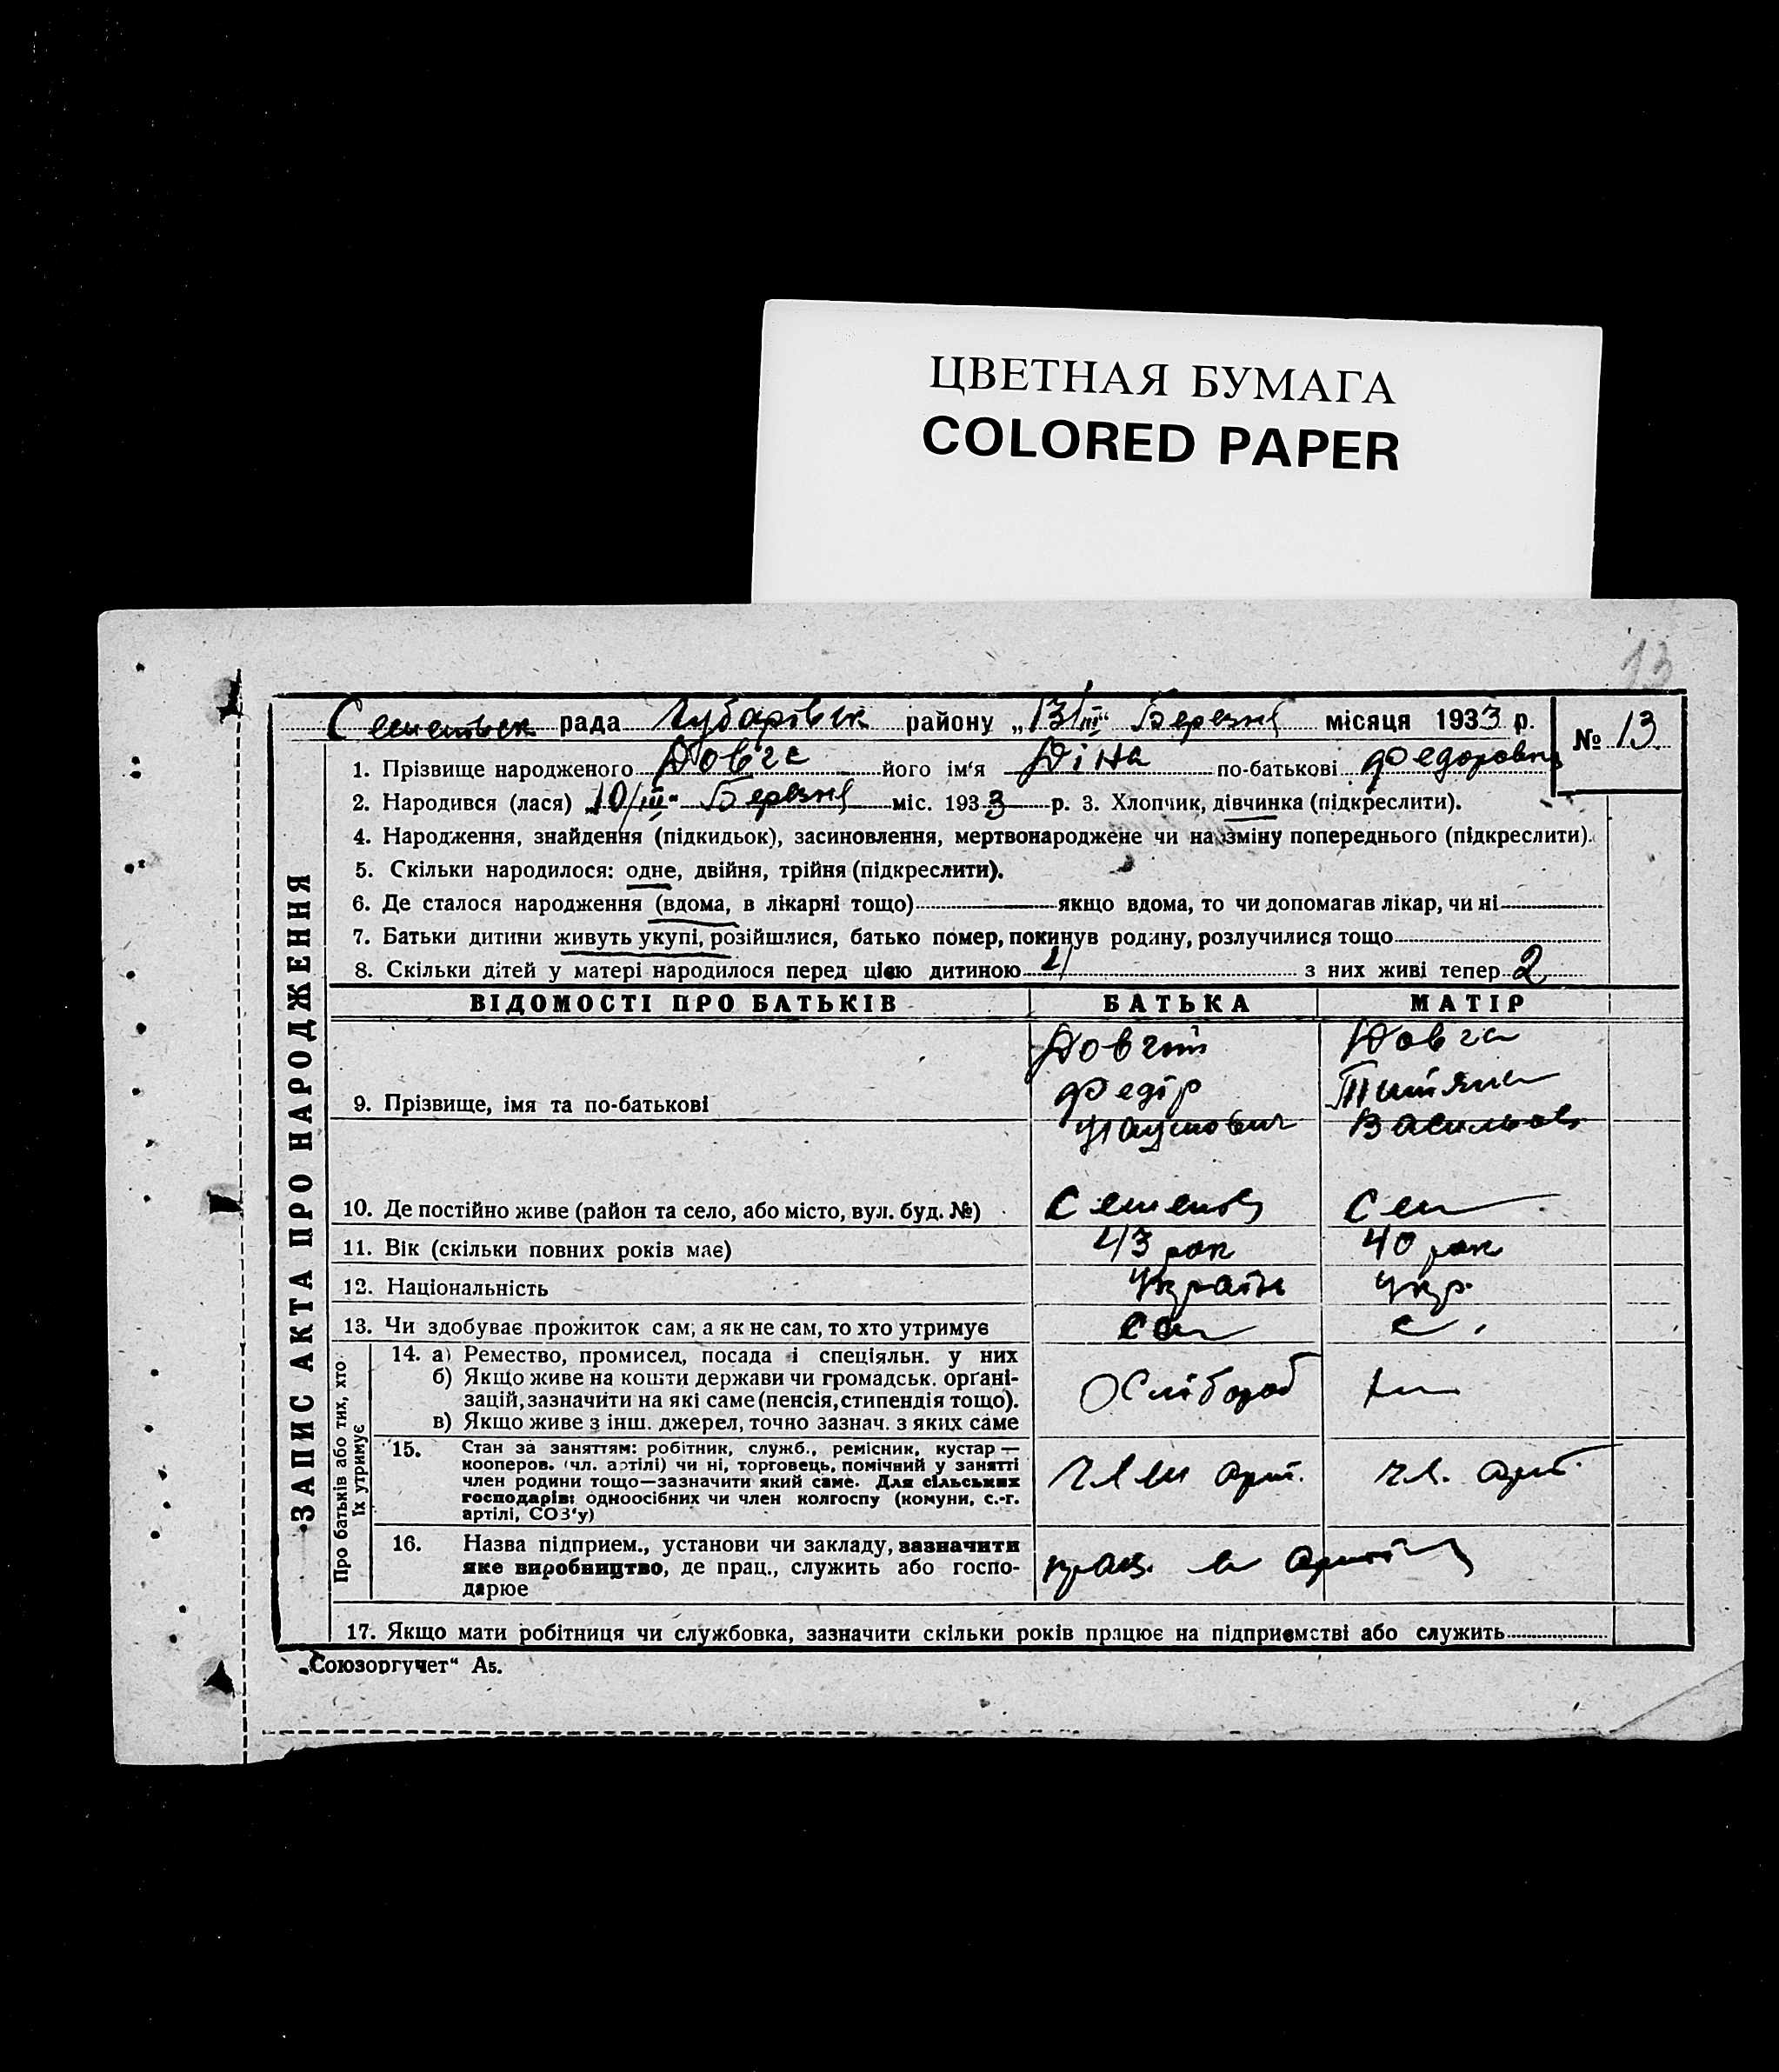 ЦВЕТНАЯ БУМАГА
COLORED PAPER
13
рада Чубарівськ району „13/III“ Березня місяця 1933 р.
№ 13
1. Прізвище народженого Довга його ім‘я Діна по-батькові Федоровна
2. Народився (лася) „10/III“ Березня міс. 1933 р. 3. Хлопчик, дівчинка (підкреслити).
4. Народження, знайдення (підкидьок), засиновлення, мертвонароджене чи на зміну попереднього (підкреслити).
5. Скільки народилося: одне, двійня, трійня (підкреслити).
6. Де сталося народження (вдома, в лікарні тощо) якщо вдома, то чи допомагав лікар, чи ні
7. Батьки дитини живуть укупі, розійшлися, батько помер, покинув родину, розлучилися тощо
8. Скільки дітей у матері народилося перед цією дитиною з них живі тепер 2
ЗАПИС АКТА ПРО НАРОДЖЕННЯ
ВІДОМОСТІ ПРО БАТЬКІВ БАТЬКА МАТІР
Довгий Довга
Федір Титяна
9. Прізвище, імя та по-батькові
Наумович
10. Де постійно живе (район та село, або місто, вул. буд. №)
11. Вік (скільки повних років має) 43 рок 40 рок
12. Національність Україн Укр.
13. Чи здобуває прожиток сам, а як не сам, то хто утримує сам с.
Про батьків або тих, хто їх утримує
14. а) Ремество, промисел, посада і спеціяльн. у них
б) Якщо живе на кошти держави чи громадськ. органі-
зацій, зазначити на які саме (пенсія, стипендія тощо).
в) Якщо живе з інш. джерел, точно зазнач. з яких саме
15. Стан за заняттям: робітник, служб., ремісник, кустар —
кооперов. (чл. артілі) чи ні, торговець, помічний у занятті
член родини тощо—зазначити який саме. Для сільських
господарів: одноосібних чи член колгоспу (комуни, с.-г.
артілі, СОЗ‘у)
член арт. чл. арт.
16. Назва підприєм., установи чи закладу, зазначити
яке виробництво, де прац., служить або госпо-
дарює
прац. в артілі
17. Якщо мати робітниця чи службовка, зазначити скільки років працює на підприємстві або служить
„Союзоргучет“ А5.